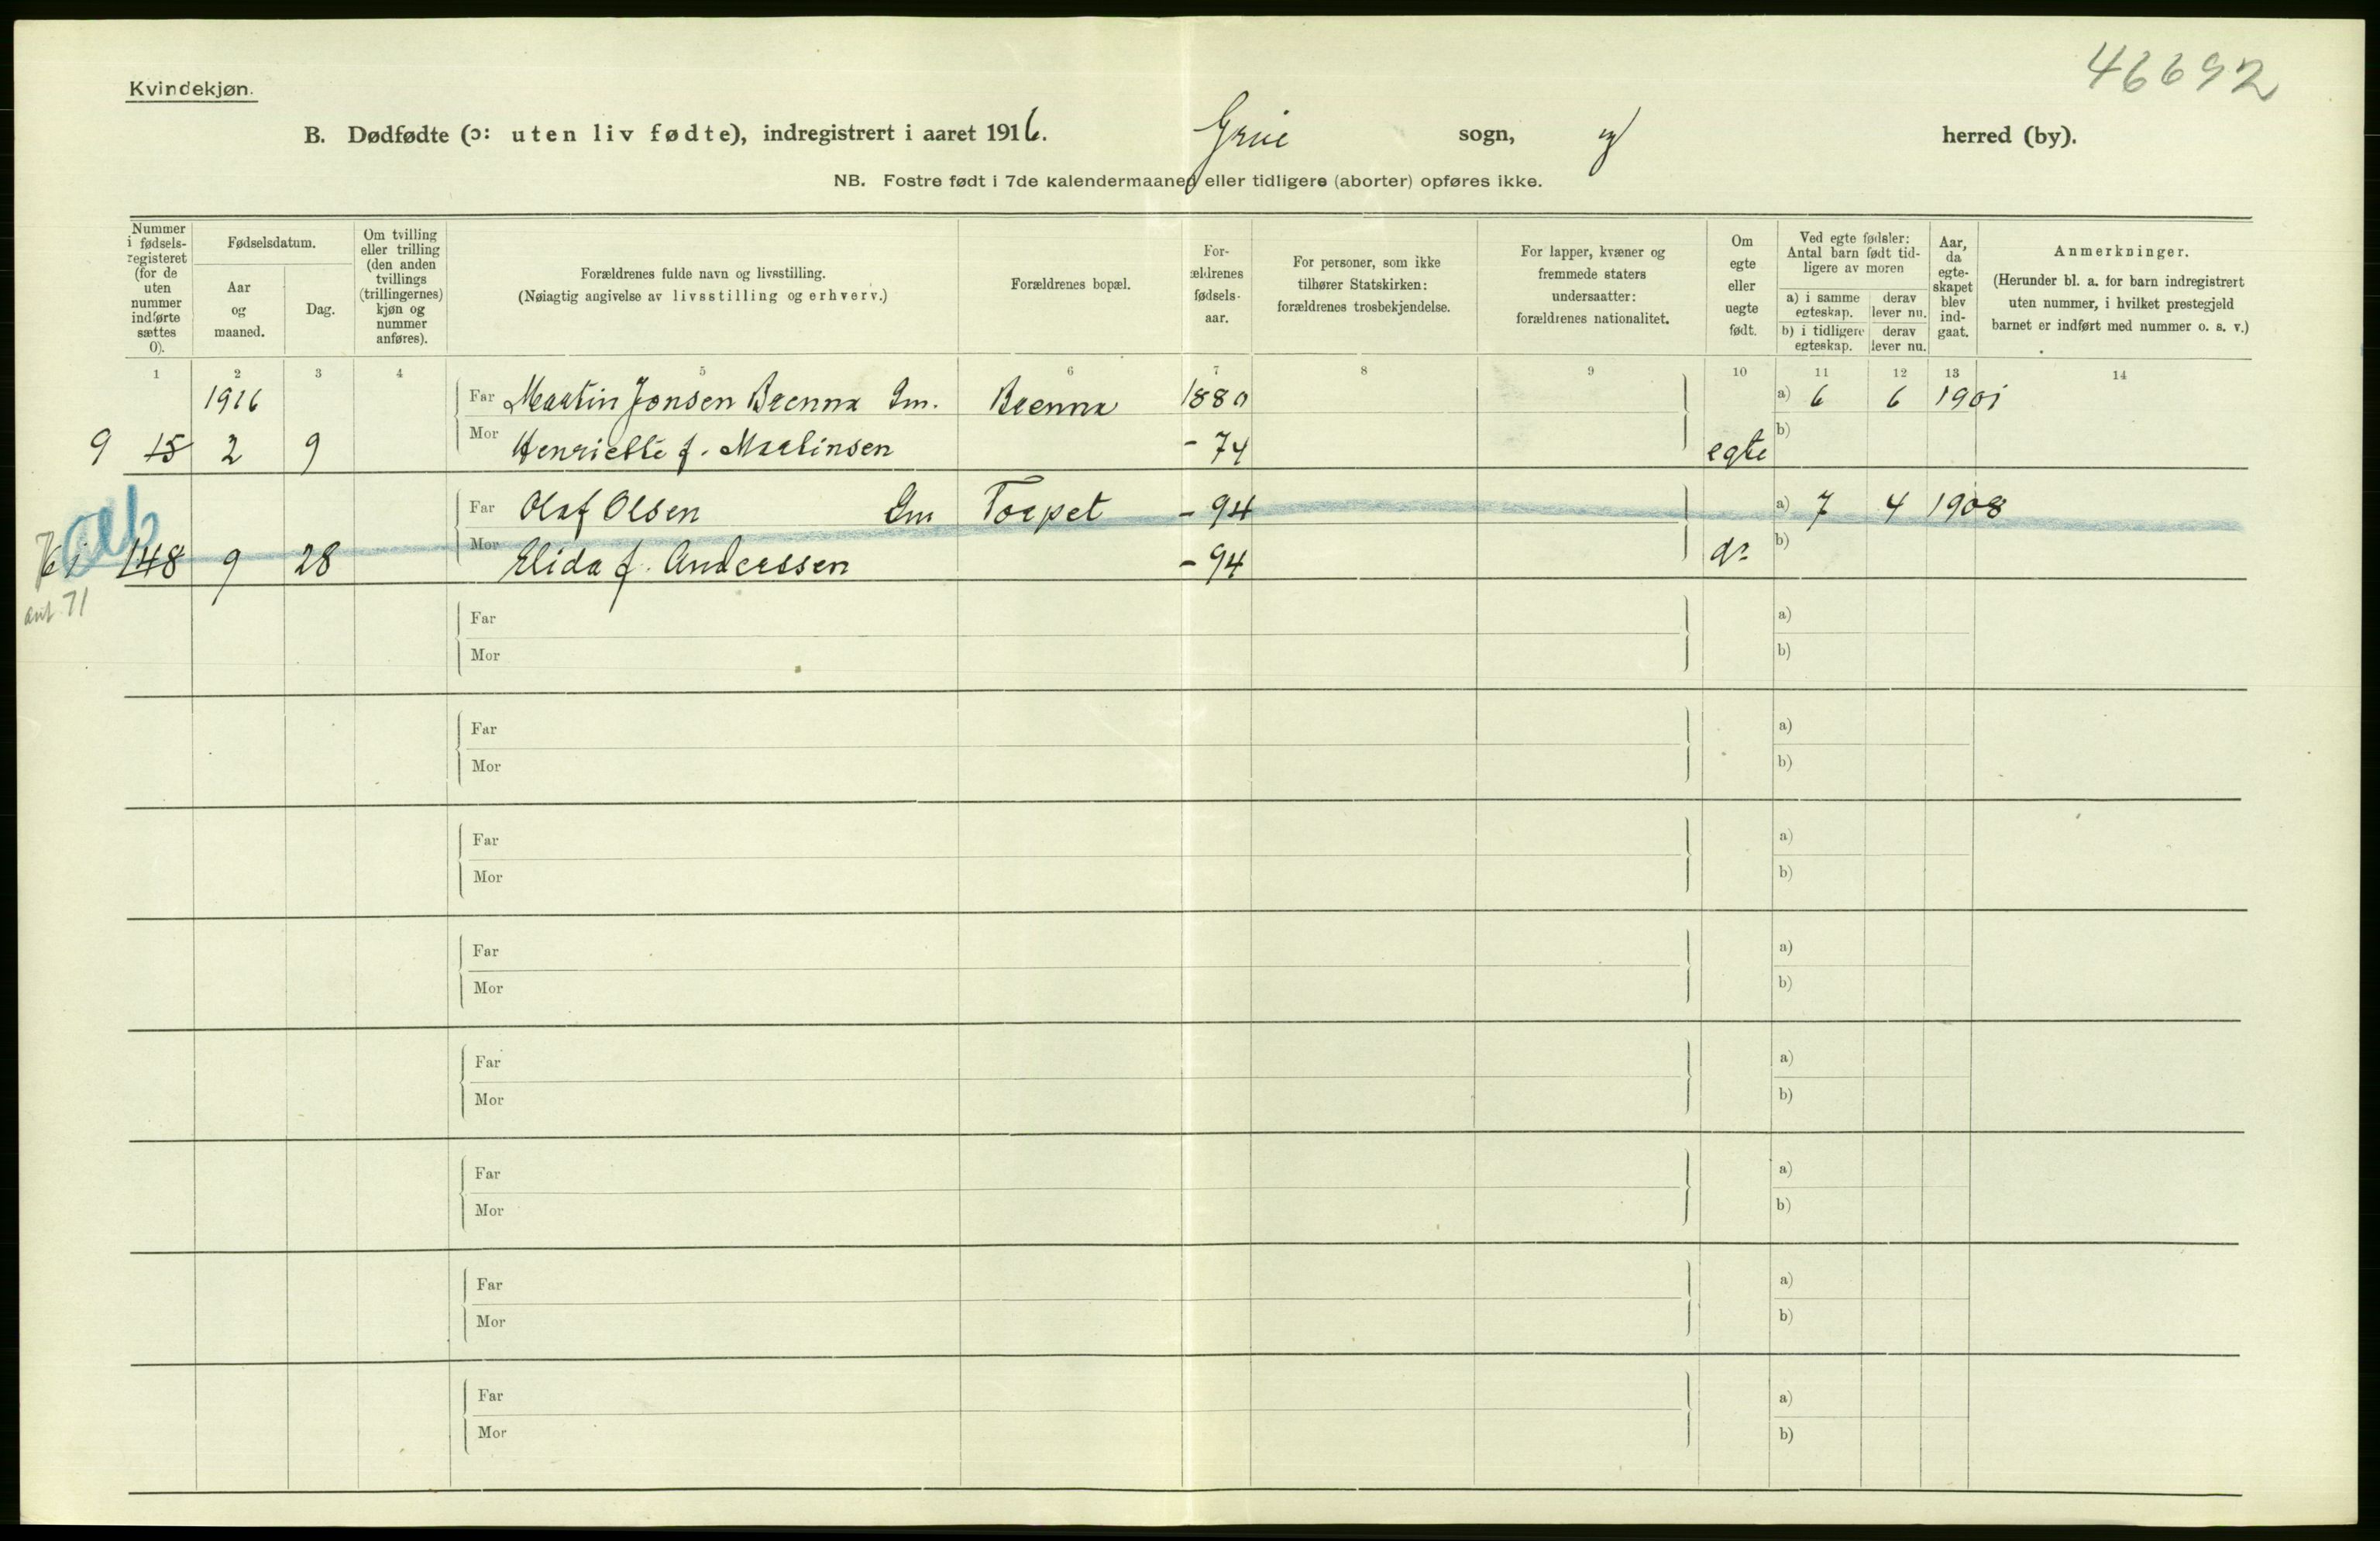 46692
Kvindekjøn.
B. Dødfødte (ɔ: uten liv fødte), indregistrert i aaret 1916. Grue sogn, og herred (by).
NB. Fostre født i 7de kalendermaaned eller tidligere (aborter) opføres ikke.
Nummer i fødsels-registeret (for de uten nummer indførte sættes 0).
Fødselsdatum.
Aar og maaned.
Dag.
Om tvilling eller trilling (den anden tvillings (trillingernes) kjøn og nummer anføres).
Forældrenes fulde navn og livsstilling.
(Nøiagtig angivelse av livsstilling og erhverv.)
Forældrenes bopæl.
For-ældrenes fødsels-aar.
For personer, som ikke tilhører Statskirken: forældrenes trosbekjendelse.
For lapper, kvæner og fremmede staters undersaatter: forældrenes nationalitet.
Om egte eller uegte født.
Ved egte fødsler: Antal barn født tid-ligere av moren
a) i samme egteskap. derav lever nu.
b) i tidligere egteskap. derav lever nu.
Aar, da egte-skapet blev ind-gaat.
Anmerkninger.
(Herunder bl. a. for barn indregistrert uten nummer, i hvilket prestegjeld barnet er indført med nummer o. s. v.)
1 2 3 4 5 6 7 8 9 10 11 12 13 14
1916 Far Martin Jonsen Brenna Gm. Brenna 1880 a) 6 6 1901
9 15 2 9 Mor Henriette f. Martinsen - 74 egte b)
Far Olaf Olsen Gm Torpet - 94 a) 7 4 1908
ab 148 9 28 Mor Elida f. Anderssen - 94 do b)
ant. 71
Far a)
Mor b)
Far a)
Mor b)
Far a)
Mor b)
Far a)
Mor b)
Far a)
Mor b)
Far a)
Mor b)
Far a)
Mor b)
Far a)
Mor b)